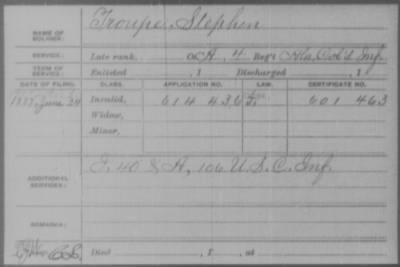 NAME OF SOLDIER: Troupe, Stephen
SERVICE: Late rank, Co. A, 4 Reg't Ala. Col'd Inf.
TERM OF SERVICE: Enlisted , 1 Discharged , 1
DATE OF FILING. CLASS. APPLICATION NO. LAW. CERTIFICATE NO.
1887, June 24 Invalid, 614 436 601 463
Widow,
Minor,
ADDITIONAL SERVICES: I, 40 & A, 106 U.S.C. Inf.
REMARKS:
Died , 1 , at